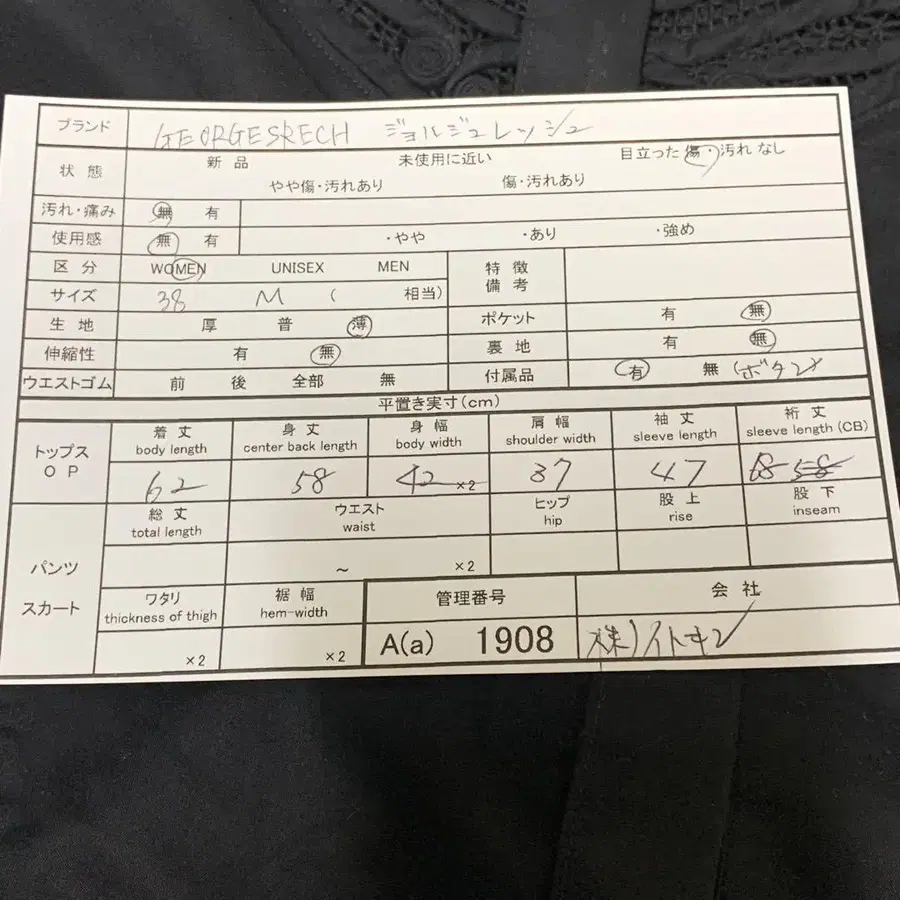 ブランド GEORGESRECH ジョルジュレッシュ
状態 新品 未使用に近い 目立った傷・汚れなし
やや傷・汚れあり 傷・汚れあり
汚れ・痛み 無 有
使用感 無 有 ・やや ・あり ・強め
区分 WOMEN UNISEX MEN 特徴
備考
サイズ 38 M ( 相当)
生地 厚 普 薄 ポケット 有 無
伸縮性 有 無 裏地 有 無
ウエストゴム 前 後 全部 無 付属品 有 無 (ボタン)
平置き実寸(cm)
トップス
OP
着丈 身丈 身幅 肩幅 袖丈 裄丈
body length center back length body width shoulder width sleeve length sleeve length (CB)
62 58 42 ×2 37 47 68 58
パンツ
スカート
総丈 ウエスト ヒップ 股上 股下
total length waist hip rise inseam
～ ×2
ワタリ 裾幅 管理番号 会社
thickness of thigh hem-width
×2 ×2 A(a) 1908 株)イトキン